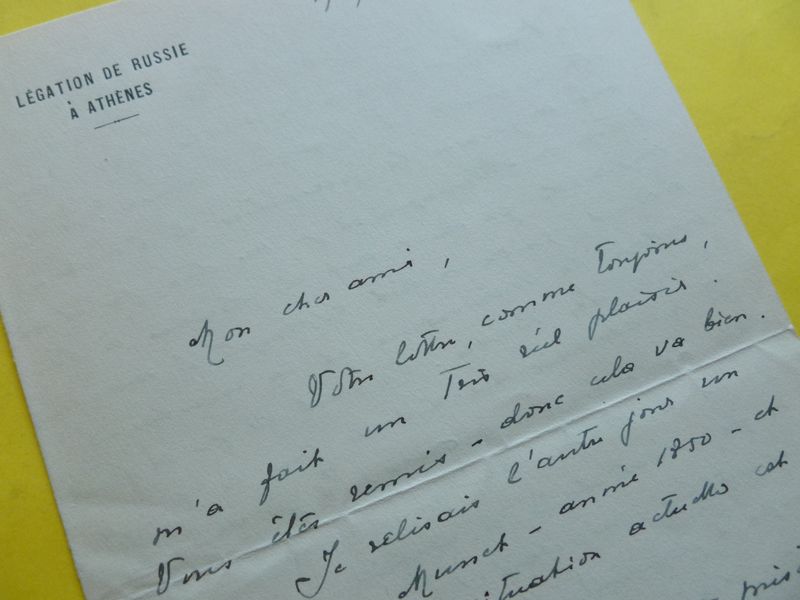 LÉGATION DE RUSSIE
À ATHÈNES
Mon cher ami,
Votre lettre, comme toujours,
m'a fait un très réel plaisir.
Vous êtes remis - donc cela va bien.
Je relisais l'autre jour un
- année 1850 - et
situation actuelle est